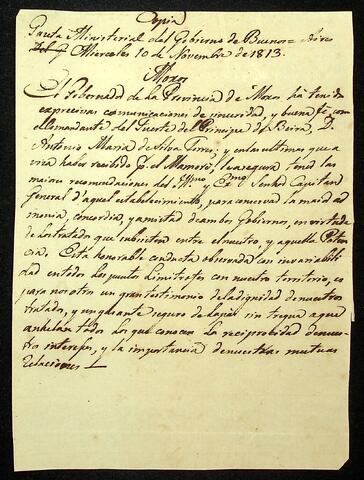 Copia
Gauta Ministerial del Gobierno de Buenos=Aires
del Miercoles 10 de Novembre de 1813.
Moxos
El Gobernador de la Provincia de Moxos ha tenido
expresivas comunicaciones de sinceridad, y buena fe con
el Comandante del Fuerte del Principe da Beira, D.
Antonio Maria da Silva Torres, y en las ultimas que a
cava haver recibido pr. el Mamoré, le asegura tener las
maiores recomendaciones del Illmo. y Exmo. Senhor Capitan
General d'aquel establecimiento, para conservar la maior ar
monia, concordia, y amistad de ambos Gobiernos, en virtude
de los tratados que subsisten entre el nuestro, y aquella Poten
cia. Esta honorable conducta observada con invariabili
dad en todos los puntos limitrofes con nuestro territorio, es
para nosotros un gran testimonio de la dignidad de nuestros
tratados, y un garante seguro de la paz sin tregua a que
anhelan todos los que conocen la reciprobidad de nues
tros intereses, y la importancia de nuestras mutuas
relaciones